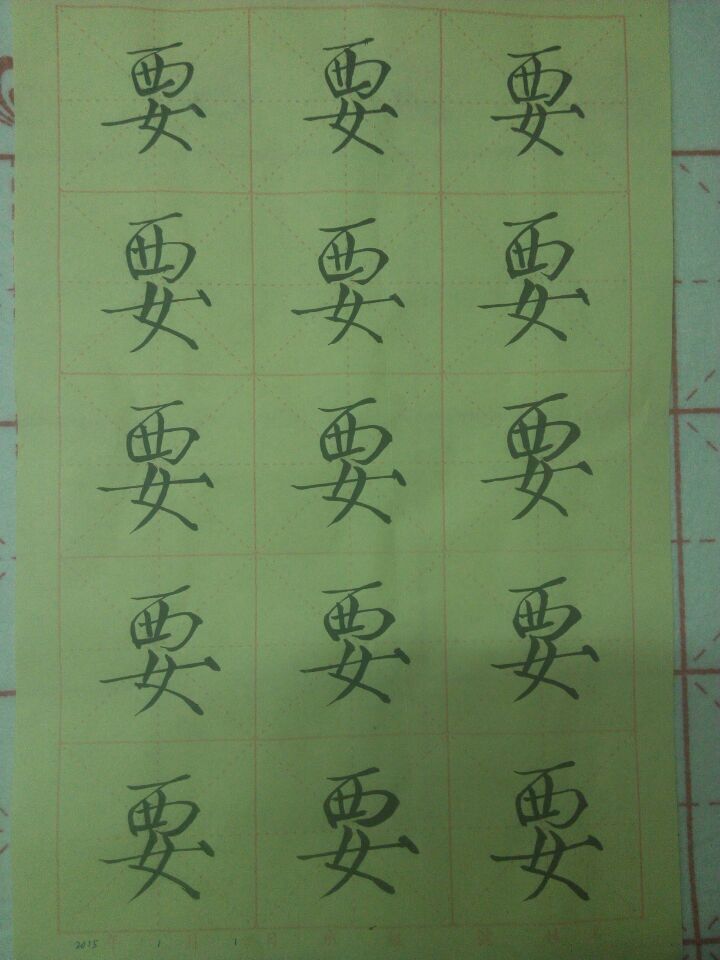 要 要 要
要 要 要
要 要 要
要 要 要
要 要 要
2015 年 1 月 1 日